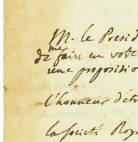 M. le Presid
de faire en votre
une propositio
l'honneur d'êtr
la Societé Roy